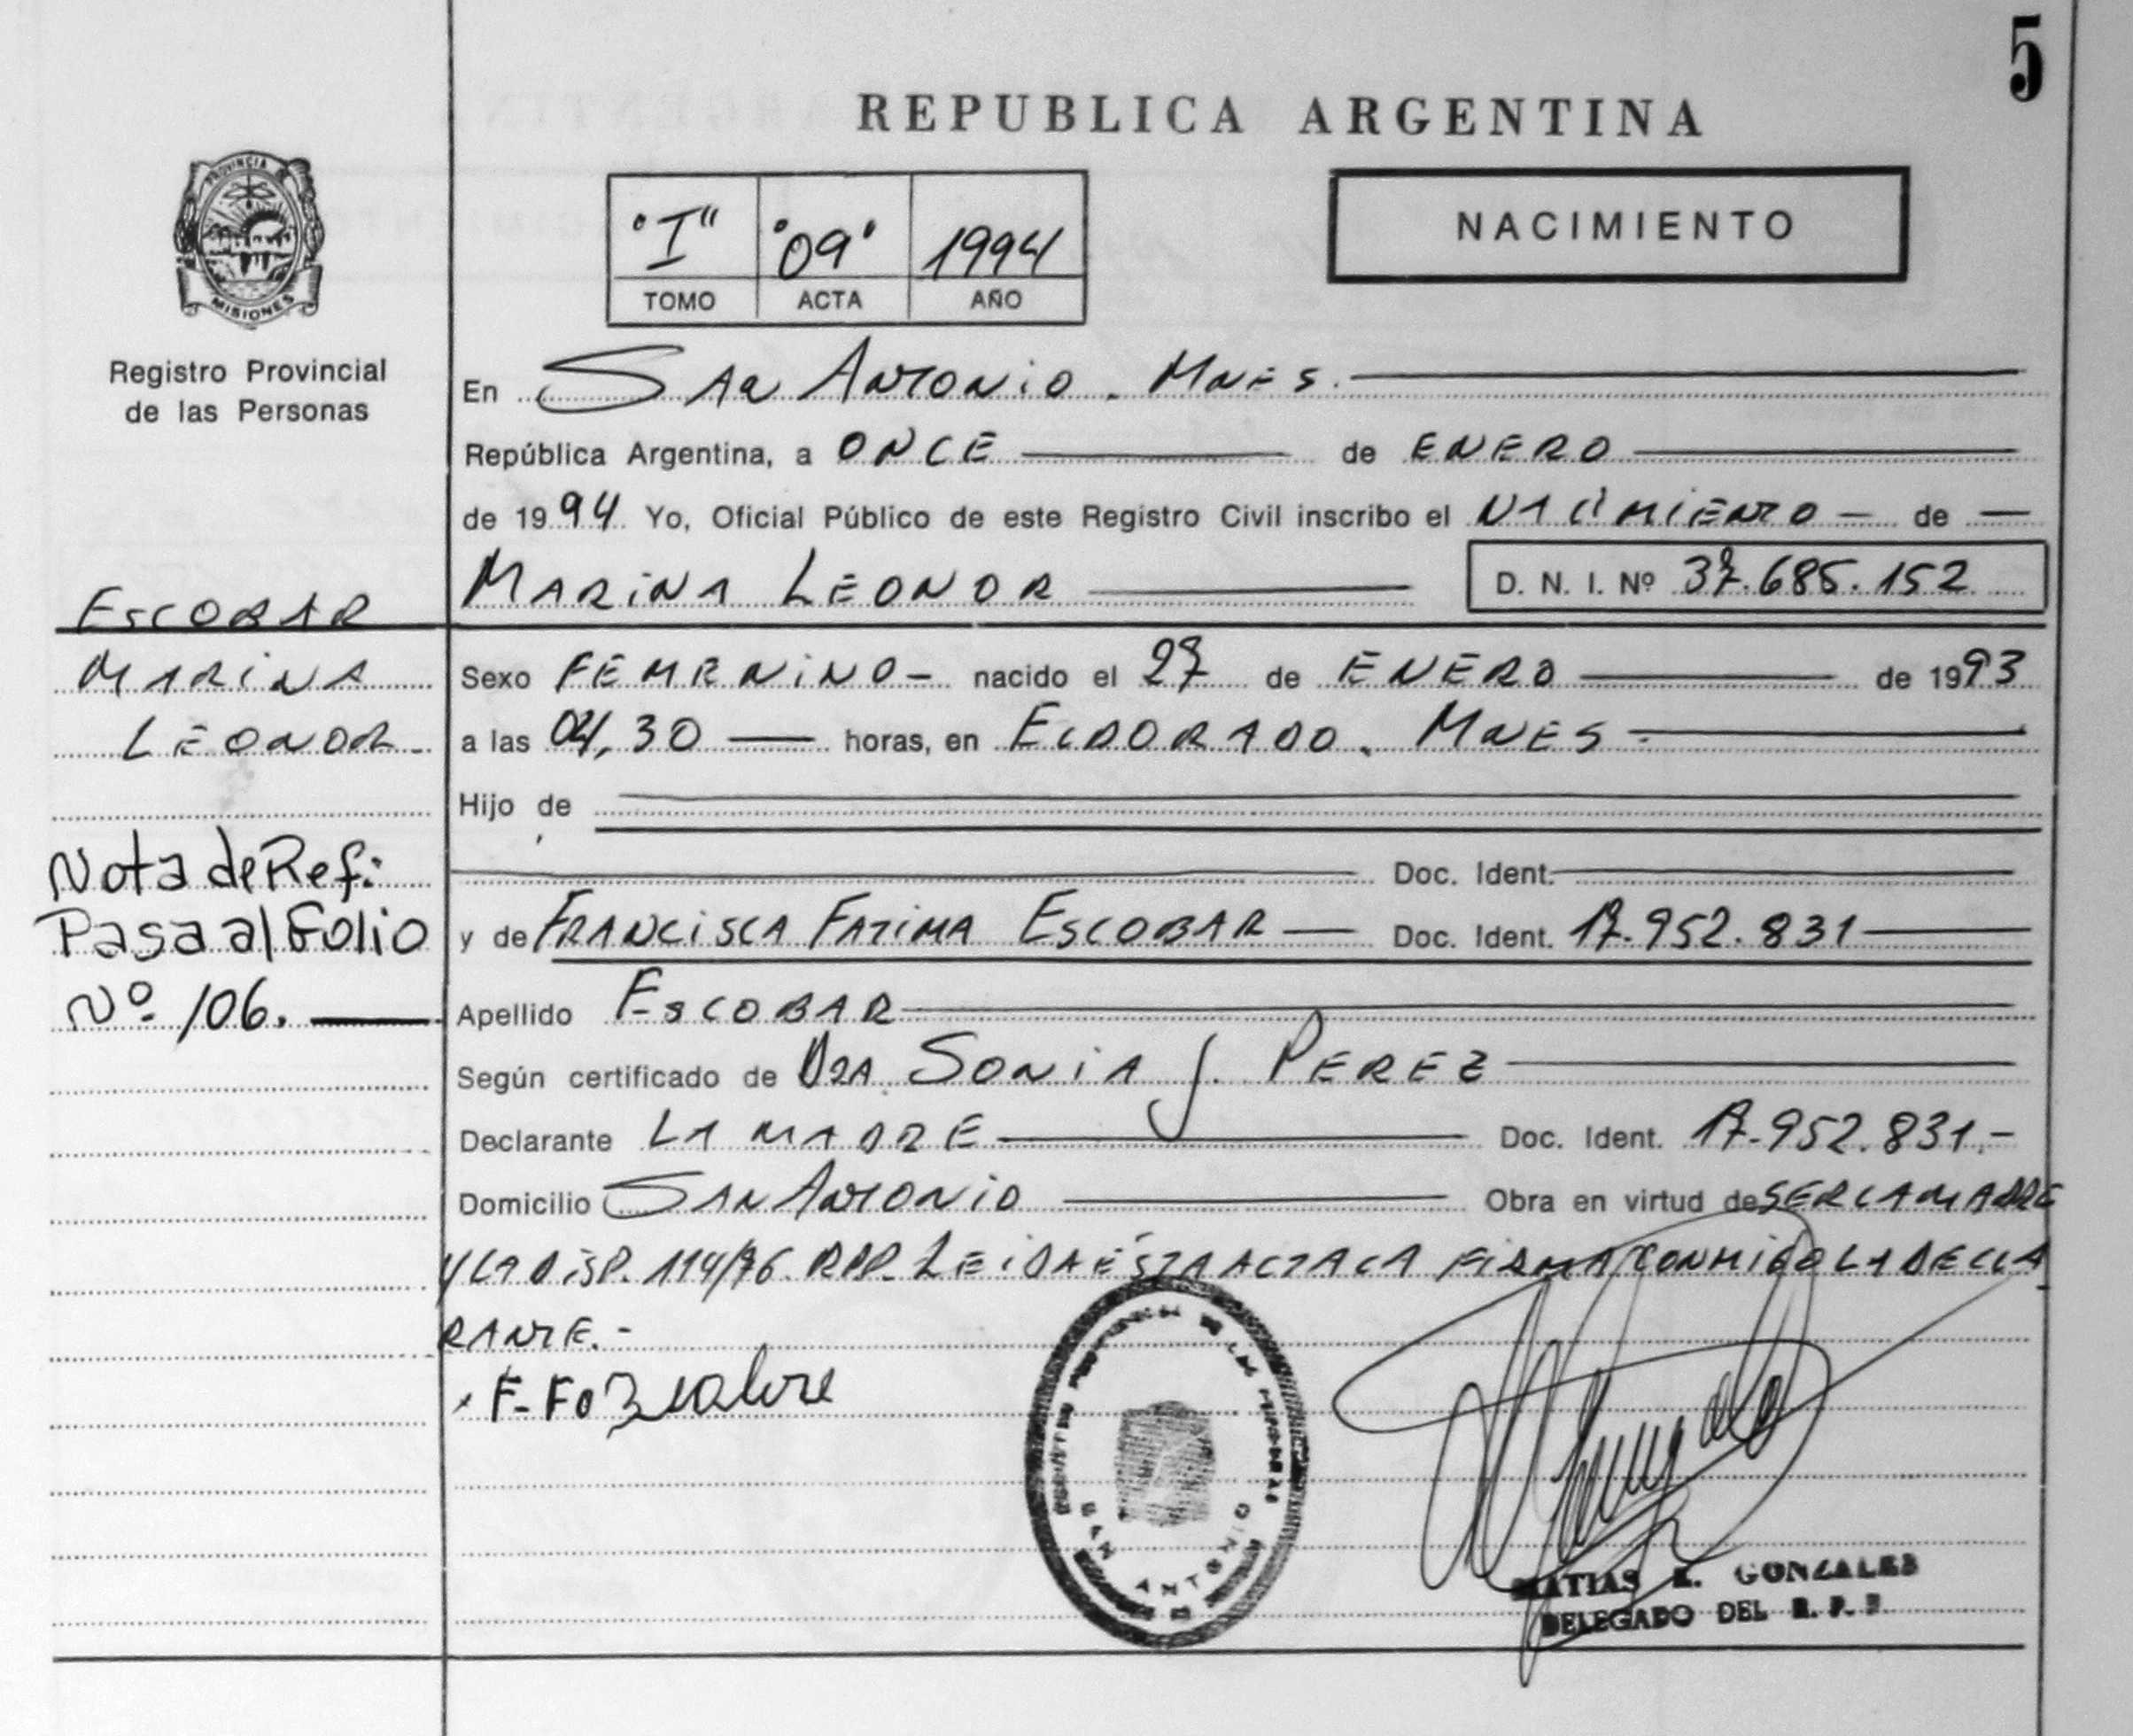 5
REPUBLICA ARGENTINA
PROVINCIA DE
MISIONES
"I" "09" 1994
TOMO ACTA AÑO
NACIMIENTO
Registro Provincial
de las Personas
En San Antonio. Mnes.
República Argentina, a ONCE de ENERO
de 1994 Yo, Oficial Público de este Registro Civil inscribo el NACIMIENTO — de —
MARINA LEONOR D. N. I. Nº 37.685.152
ESCOBAR
MARINA
LEONOR
Sexo FEMENINO - nacido el 27 de ENERO de 1993
a las 04,30 — horas, en ELDORADO. MNES
Hijo de
Doc. Ident.
y de FRANCISCA FATIMA ESCOBAR — Doc. Ident. 17.952.831
Nota de Ref:
Pasa al Folio
Nº 106.
Apellido ESCOBAR
Según certificado de DRA SONIA J. PEREZ
Declarante LA MADRE Doc. Ident. 17.952.831.-
Domicilio SAN ANTONIO Obra en virtud de SER LA MADRE
Y LA DISP. 114/76. RPP. LEIDA ÉSTA ACTA LA FIRMA CONMIGO LA DECLA
RANTE.-
SAN ANTONIO
MATIAS E. GONZALES
DELEGADO DEL R. P. P